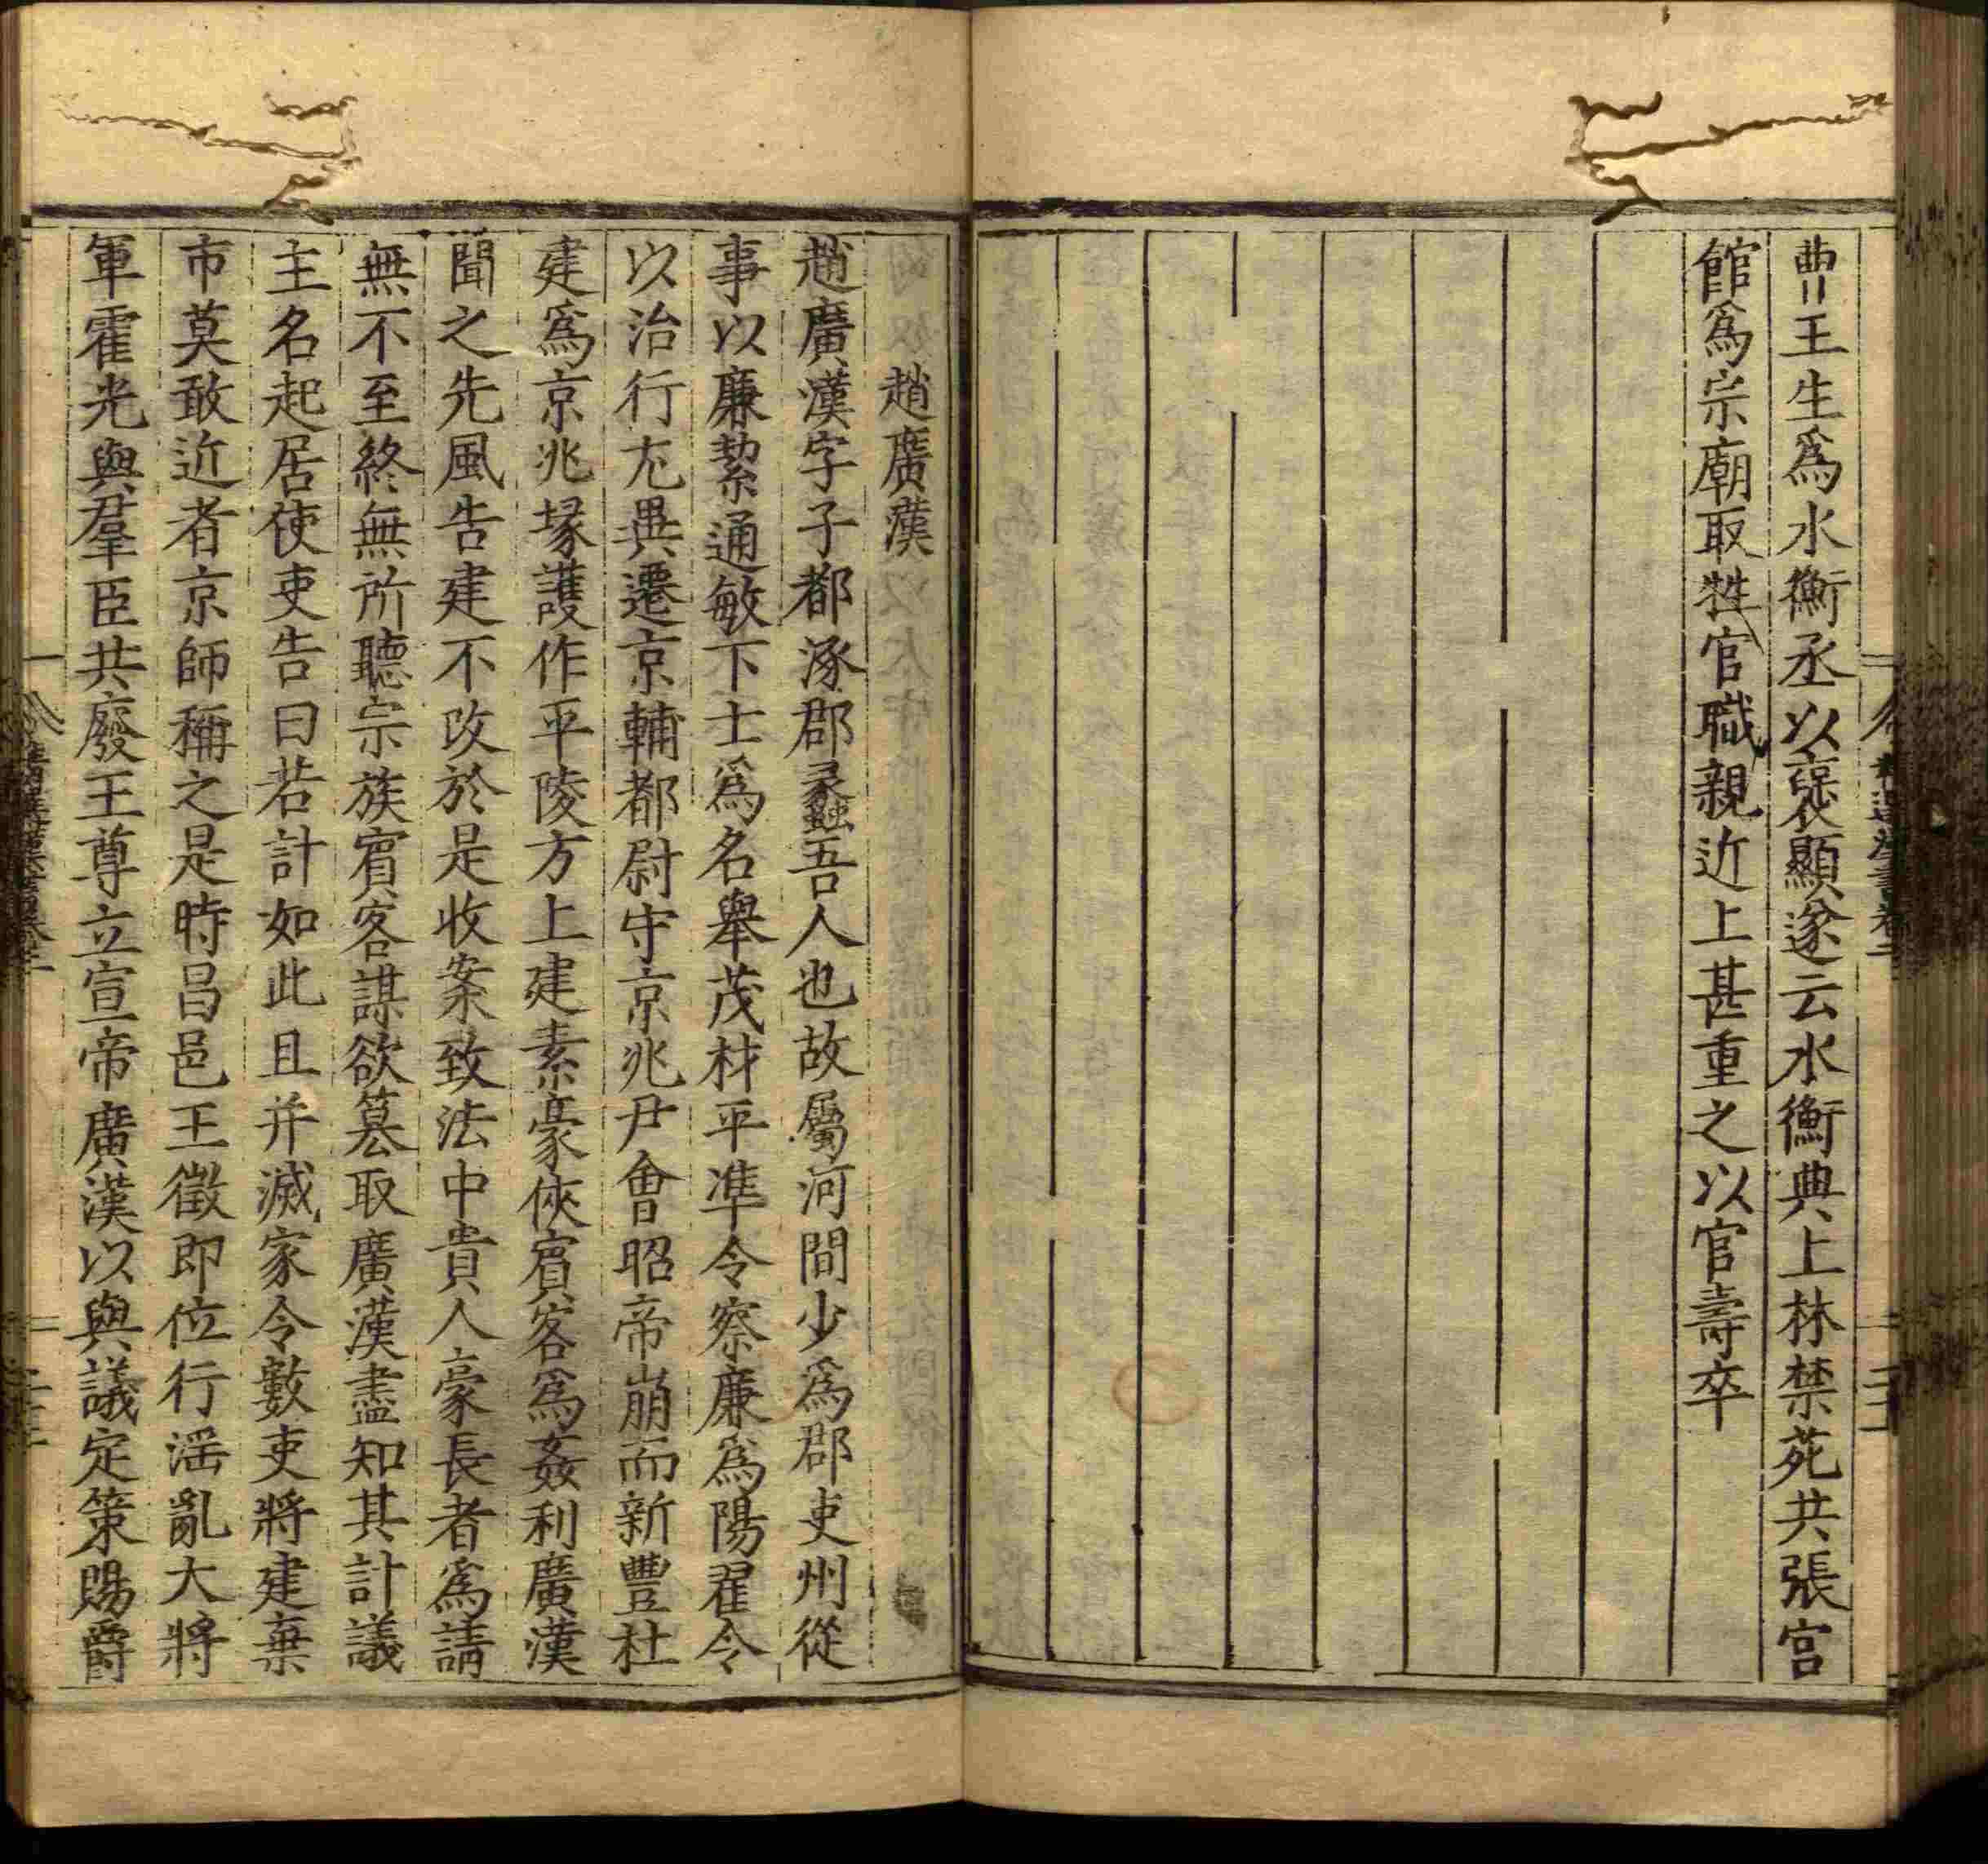 曹王生為水衡丞以襃顯遂云水衡典上林禁苑共張宮
館爲宗廟取牲官職親近上甚重之以官壽卒
趙廣漢
趙廣漢字子都涿郡蠡吾人也故屬河間少爲郡吏州從
事以廉絜通敏下士爲名舉茂材平凖令察廉爲陽翟令
以治行尤異遷京輔都尉守京兆尹會昭帝崩而新豐杜
建爲京兆掾護作平陵方上建素豪俠賔客爲姦利廣漢
聞之先風告建不改於是收案致法中貴人豪長者爲請
無不至終無所聽宗族賔客謀欲篡取廣漢盡知其計議
主名起居使吏告曰若計如此且并滅家令數吏將建棄
市莫敢近者京師稱之是時昌邑王徵即位行淫亂大將
軍霍光與羣臣共廢王尊立宣帝廣漢以與議定策賜爵